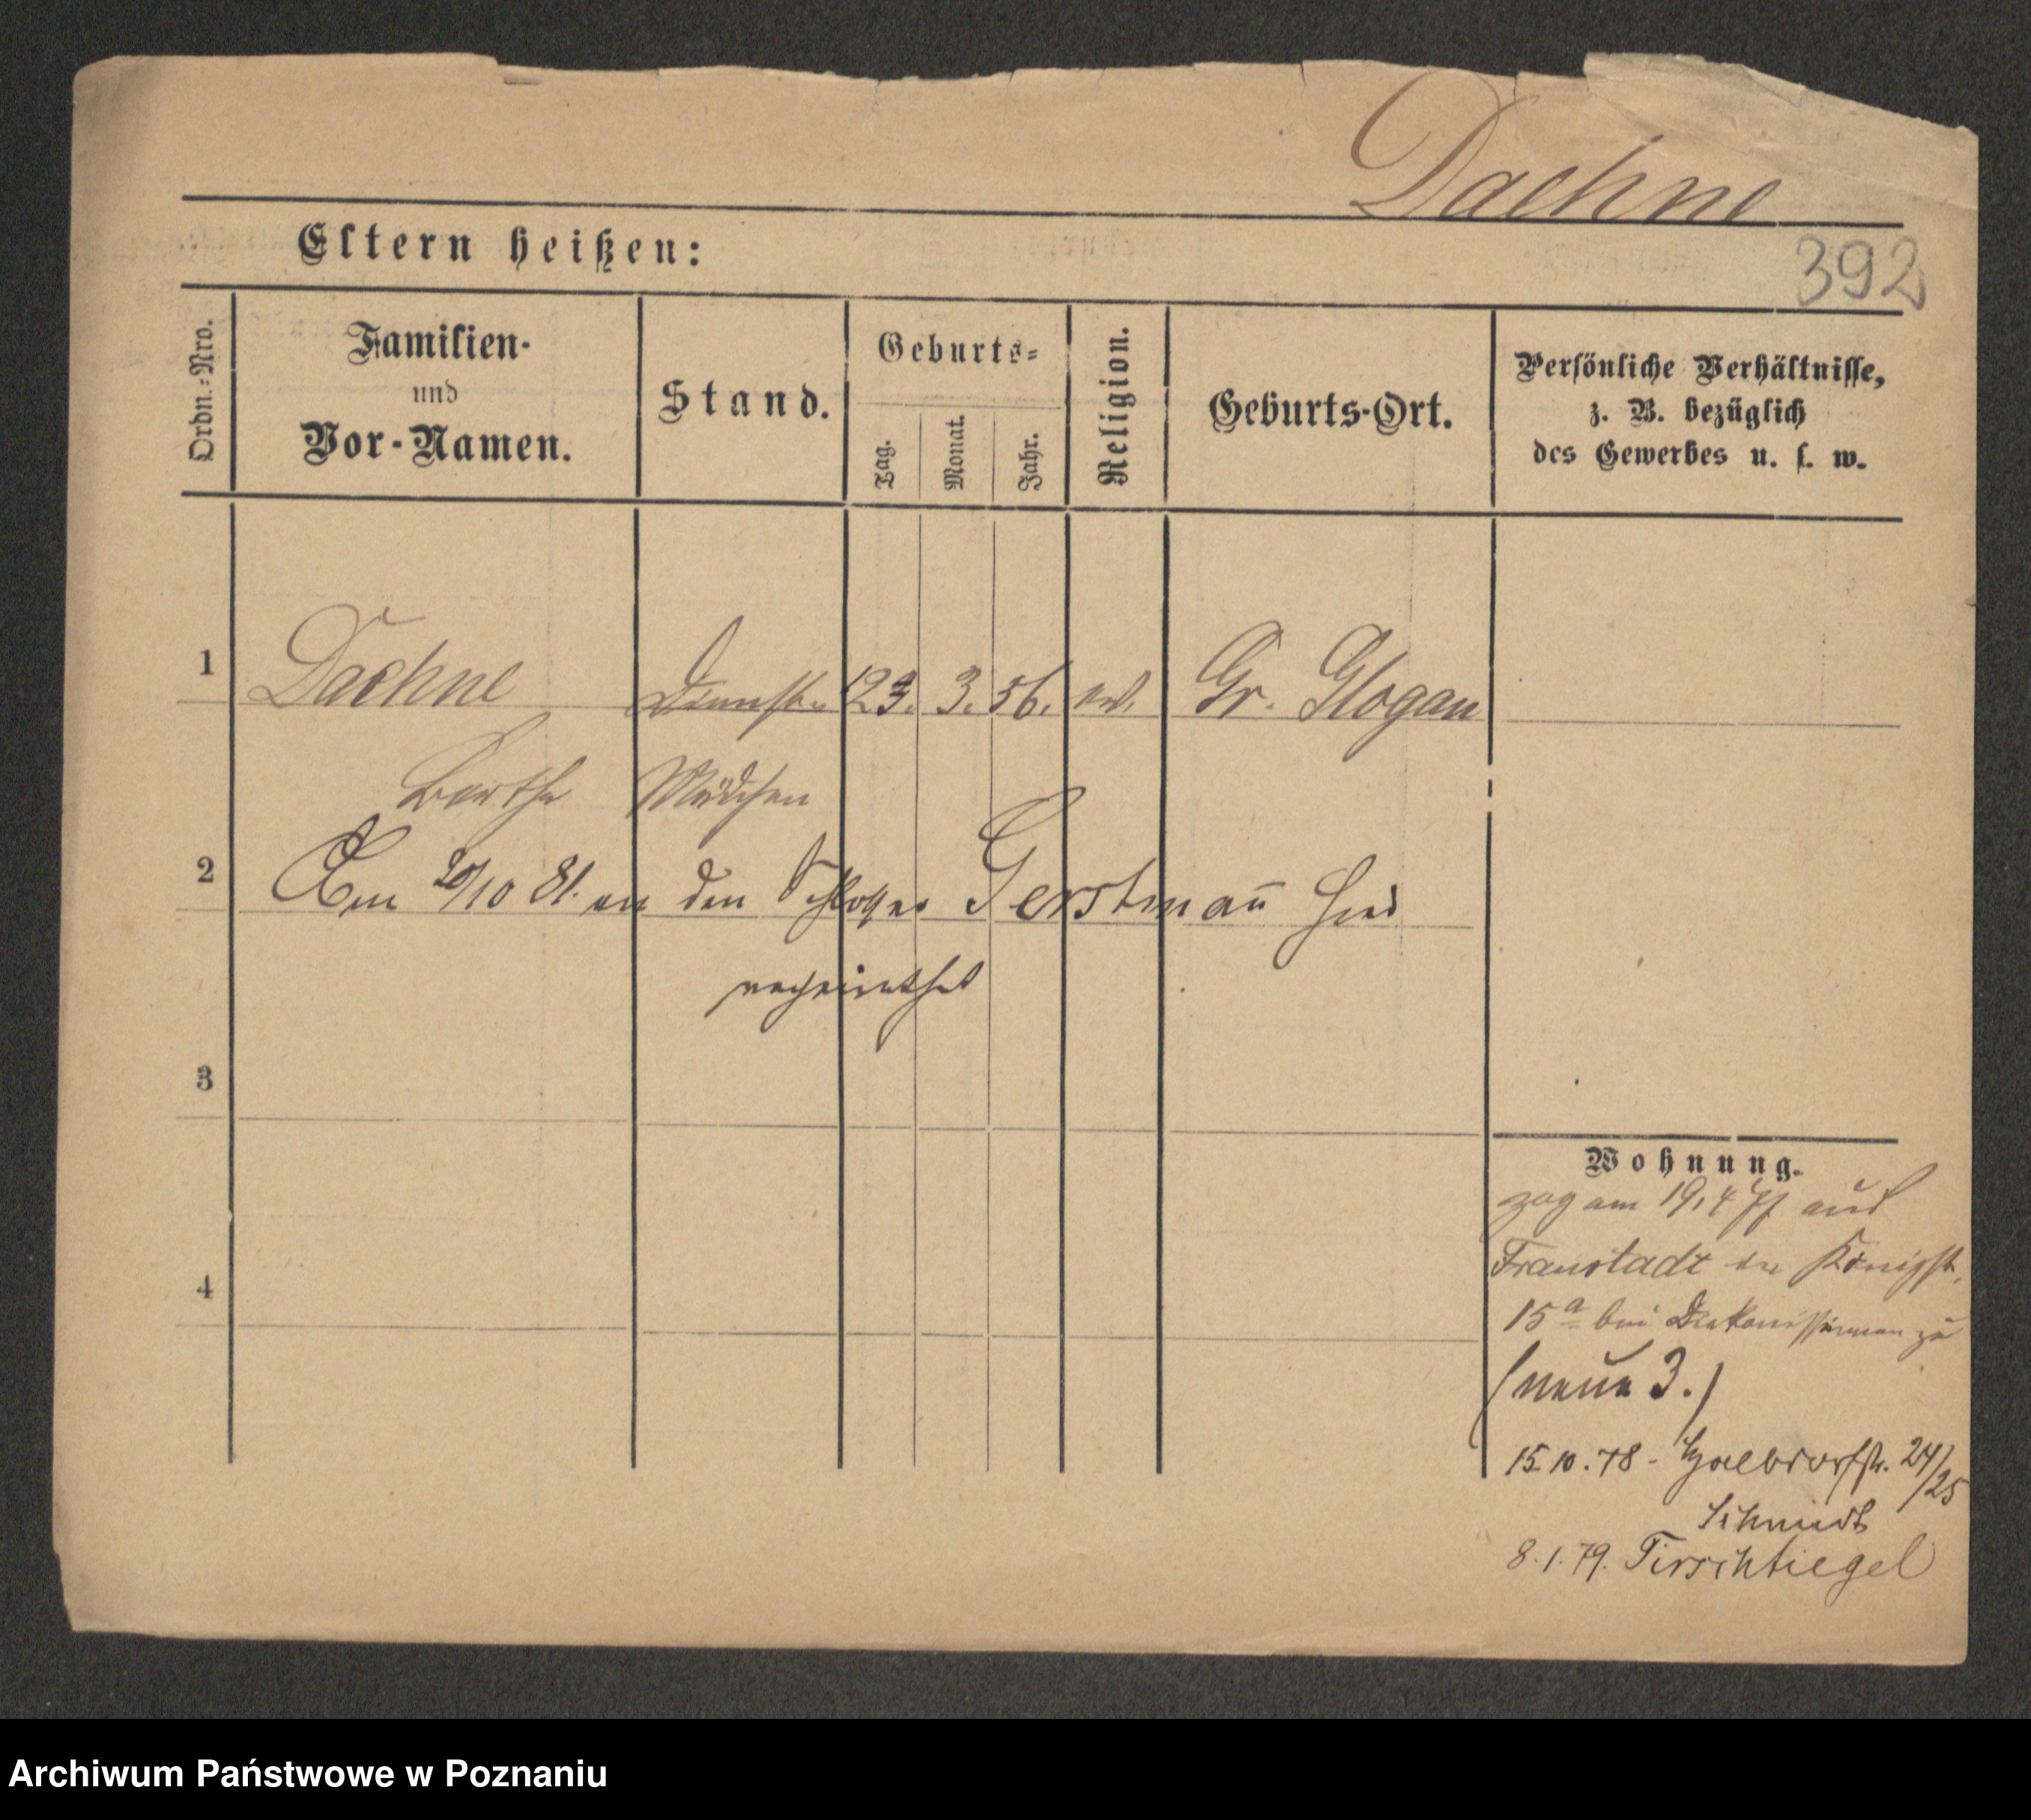 Daehne
Eltern heißen:
392
Ordn.=Nro.
Familien-
und
Vor-Namen.
Stand.
Geburts=
Tag.
Monat.
Jahr.
Religion.
Geburts-Ort.
Persönliche Verhältnisse,
z. B. bezüglich
des Gewerbes u. s. w.
1 Daehne Dienst= 23. 3. 56. ev. Gr. Glogau
Bertha Mädchen
2 Am 20/10 81. an den Schlosser Gerstmañ hier
verheirathet
3
4
Wohnung.
zog am 19.4 77 aus
Fraustadt in Königstr.
15a bei Diakonissinnen zu
(neue 3.)
15.10.78 - 24/25
Schmidt
8.1.79. Tirschtiegel
Archiwum Państwowe w Poznaniu